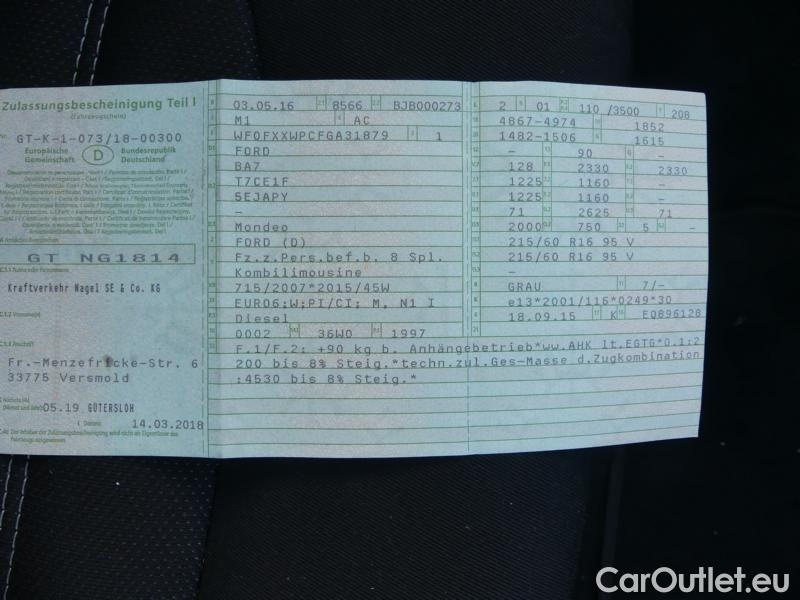 Zulassungsbescheinigung Teil I
(Fahrzeugschein)
Nr. GT-K-1-073/18-00300
Europäische Gemeinschaft D Bundesrepublik Deutschland
GT NG1814
C.1.1
Kraftverkehr Nagel SE & Co. KG
C.1.2 Vorname(n)
C.1.3 Anschrift
Fr.-Menzefricke-Str. 6
33775 Versmold
05.19 GÜTERSLOH
14.03.2018
B 03.05.16 2.1 8566 2.2 BJB000273
J M1 4 AC
E WF0FXXWPCFGA31879 3 1
D.1 FORD
BA7
D.2 T7CE1F
5EJAPY
–
D.3 Mondeo
2 FORD (D)
5 Fz.z.Pers.bef.b. 8 Spl.
Kombilimousine
715/2007*2015/45W
EURO6;W;PI/CI; M, N1 I
Diesel
0002 36W0 1997
F.1/F.2: +90 kg b. Anhängebetrieb*ww.AHK lt.EGTG*O.1:2
200 bis 8% Steig.*techn.zul.Ges-Masse d.Zugkombination
:4530 bis 8% Steig.*
L 2 9 01 110 /3500 T 208
18 4867-4974 19 1852
20 1482-1506 G 1615
– 13 90 Q –
128 2330 2330
1225 1160 –
1225 1160 –
71 2625 71
2000 750 5 –
215/60 R16 95 V
215/60 R16 95 V
–
R GRAU 11 7/–
K e13*2001/116*0249*30
6 18.09.15 17 K 16 EQ896128
21
CarOutlet.eu